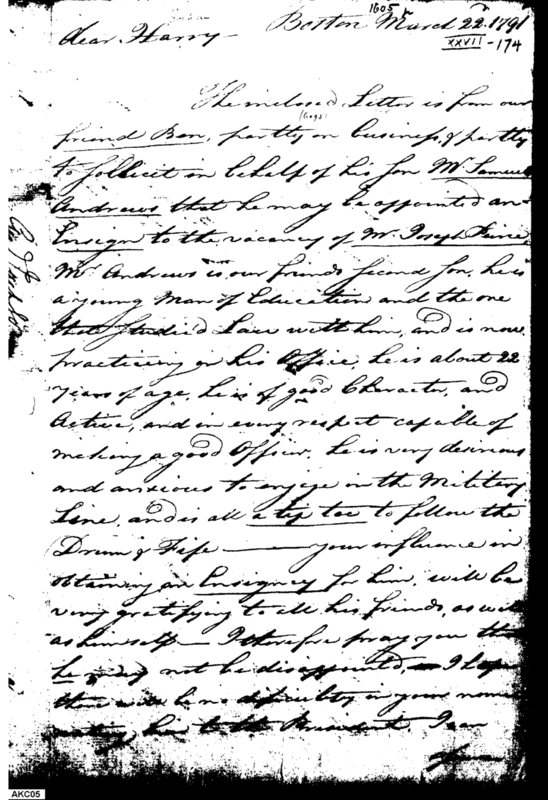 1605
Boston March 22. 1791
XXVII-174
dear Harry
The inclosed Letter is from our
friend Ben, partly on business, & partly
to sollicit in behalf of his son Mr Samuel
Andrews that he may be appointed an
Ensign to the vacancy of Mr Joseph
Mr Andrews is our friends second son, he is
a young Man of Education and the one
that studied Law with him, and is now
practicing in his Office, he is about 22
Years of age, he is of good Character, and
Active, and in every respect capable of
making a good Officer, he is very desirous
and anxious to engage in the Military
Line, and is all a tip toe to follow the
Drum & Fife — your influence in
obtaining an Ensigncy for him, will be
very gratifying to all his friends, as well
as himself — I therefore pray you that
he may not be disappointed, I hope
there will be no difficulty in your nomi
nating him to the President I am
AKC05